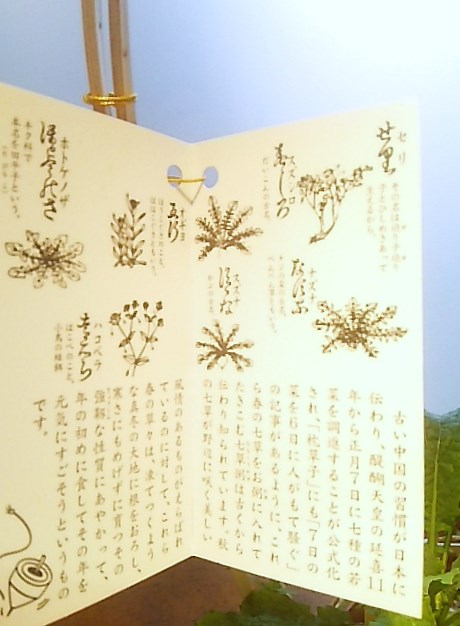 セリ
せり
スズシロ
すゞしろ
だいこんの古名。
ナズナ
なづな
スズナ
すゞな
かぶの古名。
ゴギョウ
ホトケノザ
ほとけのざ
キク科で
本名を田平子という。
ハコベラ
はこべら
はこべのこと。
古い中国の習慣が日本に
伝わり、醍醐天皇の延喜11
年から正月7日に七種の若
菜を調進することが公式化
され、「枕草子」にも「7日の
菜を6日に人がもて騒ぐ」
の記事があるように、これ
ら春の七草をお粥に入れて
たきこむ七草粥は古くから
伝わり知られています。秋
の七草が野辺に咲く美しい
風情のあるものがえらばれ
ているのに対して、これら
春の草々は、凍てつくよう
な真冬の大地に根をおろし、
寒さにもめげずに育つその
強靱な性質にあやかって、
年の初めに食してその年を
元気にすごそうというもの
です。